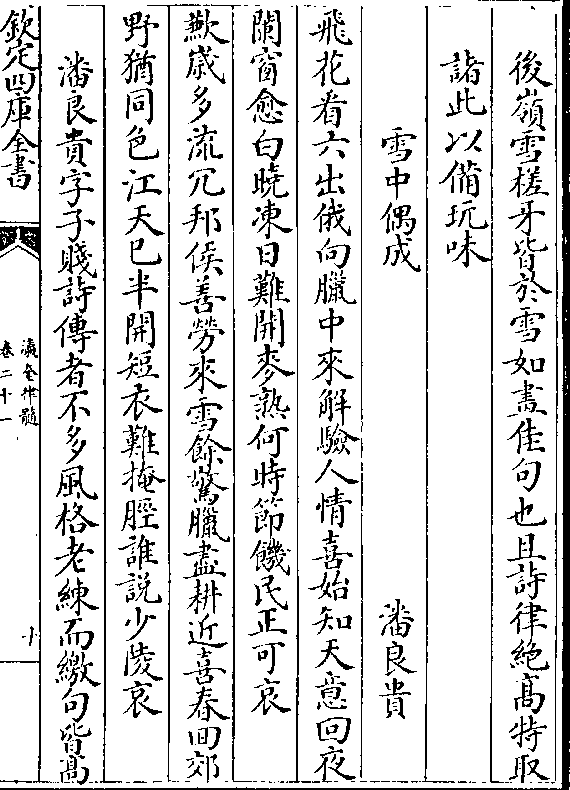 後嶺雪槎牙皆於雪如畫佳句也且詩律絶髙特取
諸此以備玩味
雪中偶成　潘良貴
飛花看六出俄向臘中來解驗人情喜始知天意回夜
闌窗愈白曉凍日難開麥熟何時節饑民正可哀
歉嵗多流冗邦侯善勞來雪餘驚臘盡耕近喜春回郊
野猶同色江天已半開短衣難掩脛誰說少陵哀
潘良貴字子賤詩傳者不多風格老練而繳句皆髙
欽定四庫全書
瀛奎律髓
卷二十一
十